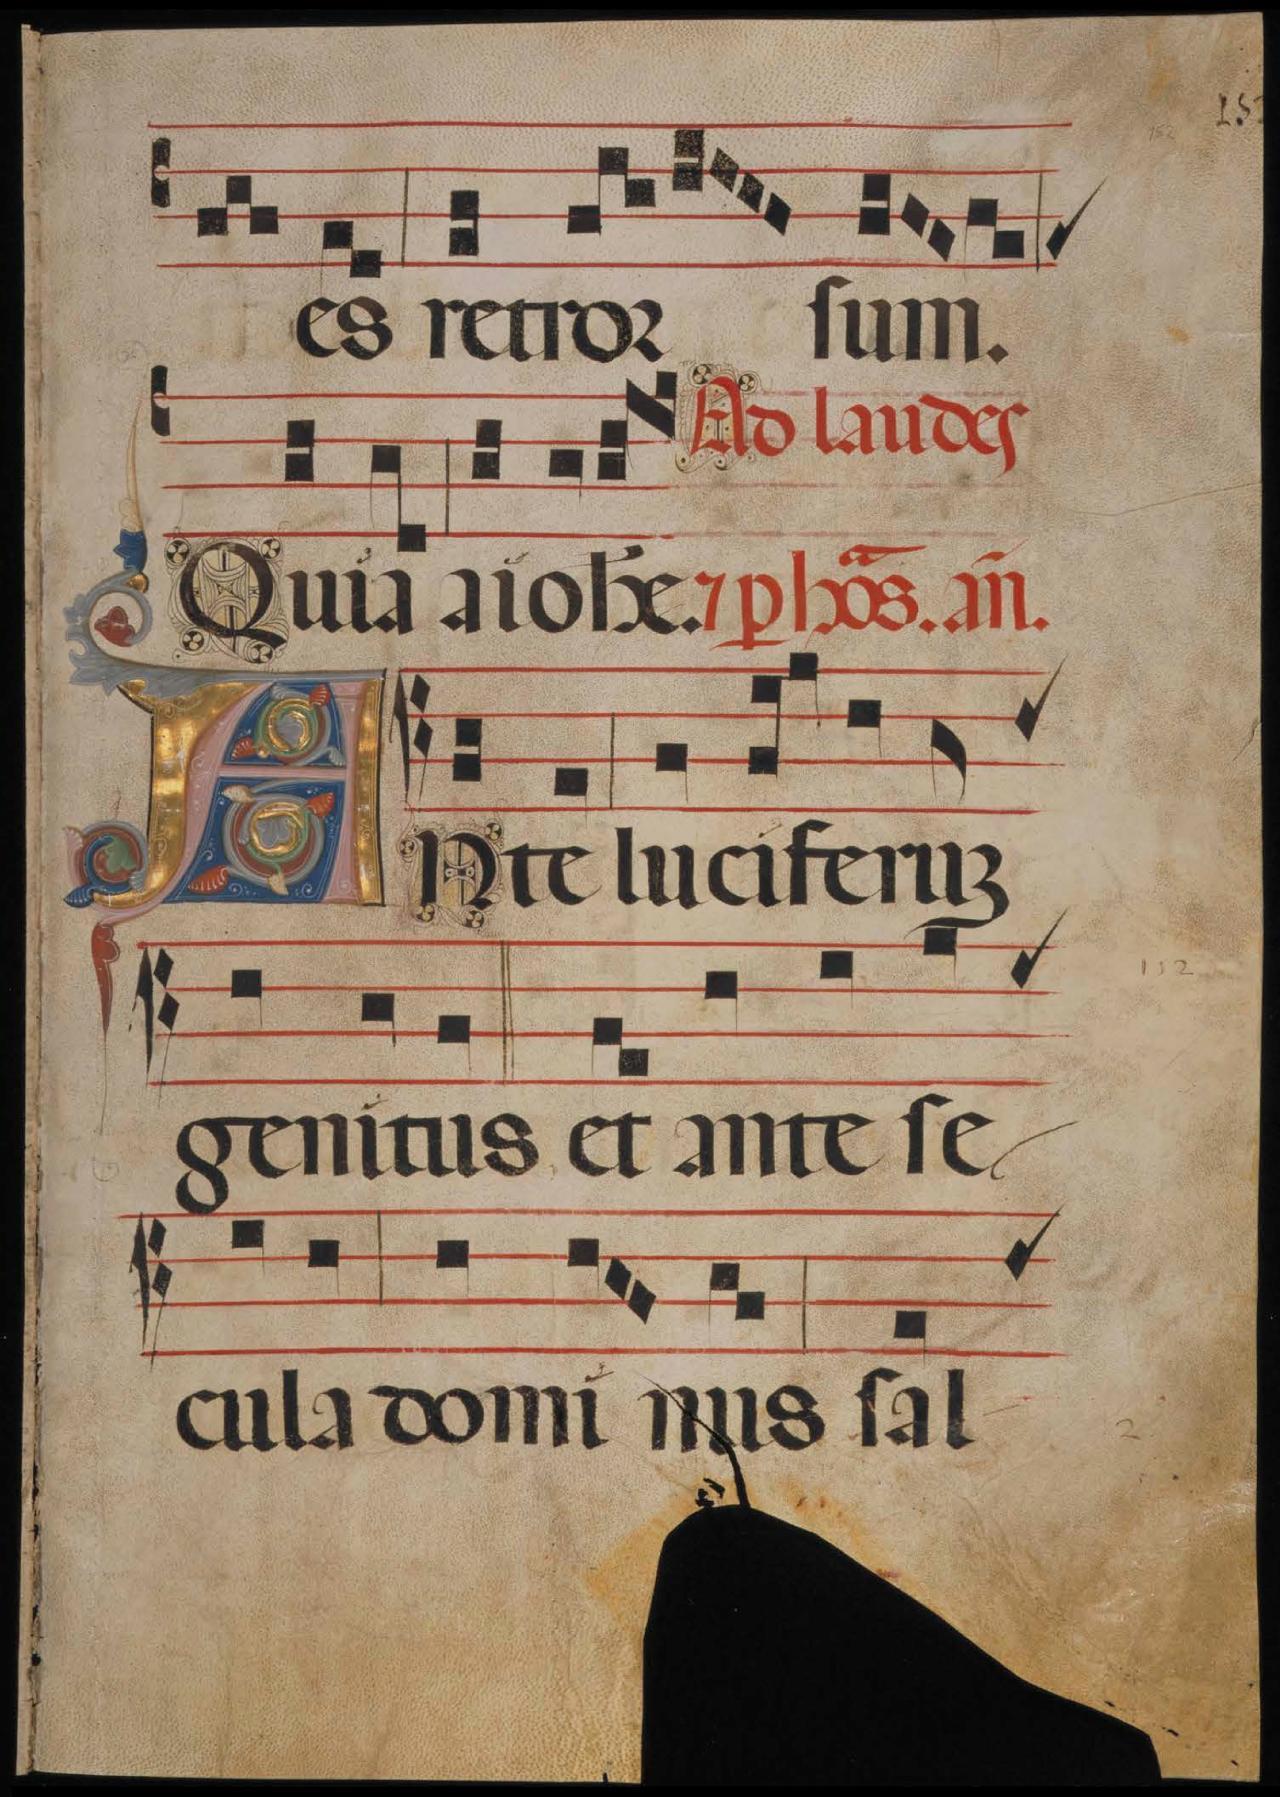 152
152
es retror sum.
Ad laudes
Quia a iohe. ⁊ p hōs. añ.
Ante luciferuꝫ
112
genitus et ante se
cula domi nus sal
2